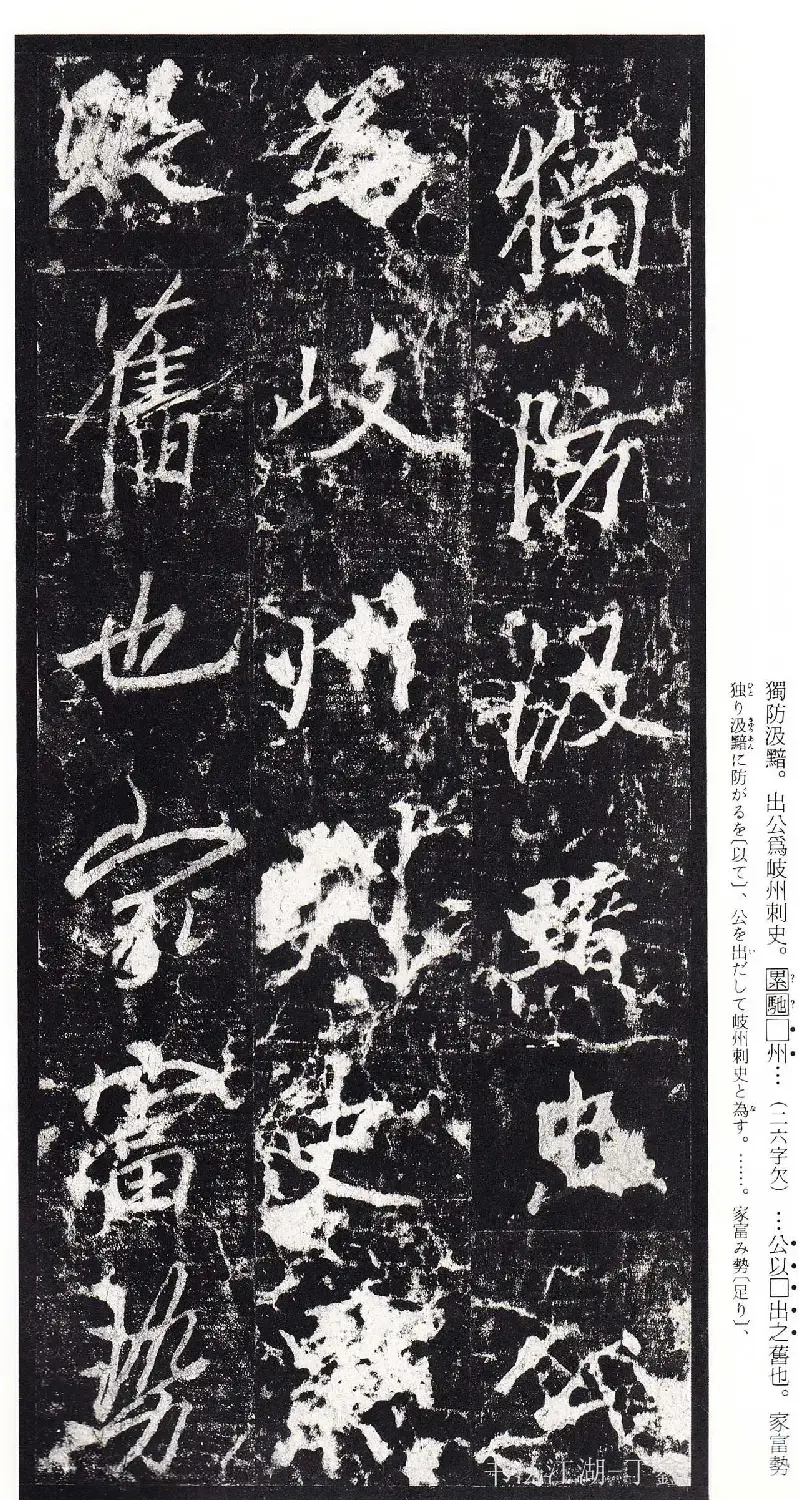 獨防汲黯。出公爲岐州刺史。累馳□州…（二六字欠）…公以□出之舊也。家富勢
独り汲黯に防がるを〔以て〕、公を出だして岐州刺史と為す。……。家富み勢〔足り〕、
獨防汲黯出公
爲岐州刺史累
舊也家富勢
江湖